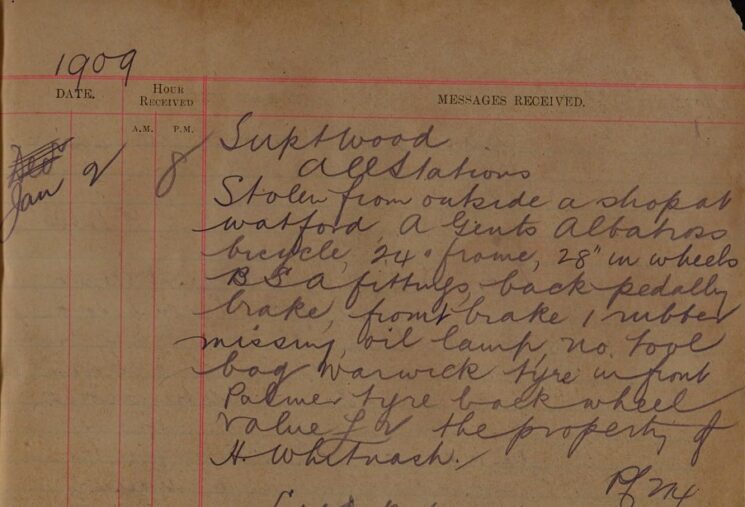 1909
DATE. HOUR RECEIVED MESSAGES RECEIVED.
A.M. P.M.
Supt Wood
All Stations
Jan 2 8 Stolen from outside a shop at
Watford, A Gents Albatross
bicycle, 24" frame, 28" in wheels
B S A fittings, back pedally
brake, front brake 1 rubber
missing, oil lamp, no tool
bag Warwick tyre in front
Palmer tyre back wheel
Value £2 the property of
H. Whitnash.